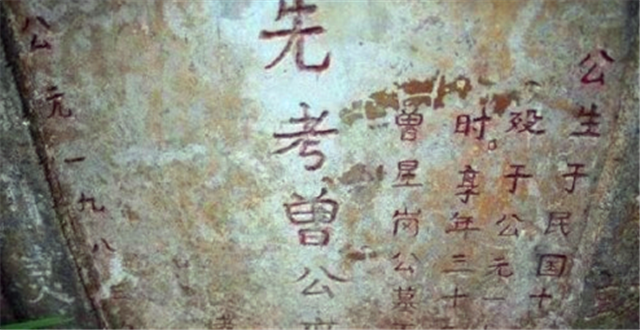 公生于民国十
殁于公元一
时。享年三十
曾星岗公墓
先考曾公
公元一九八
灵